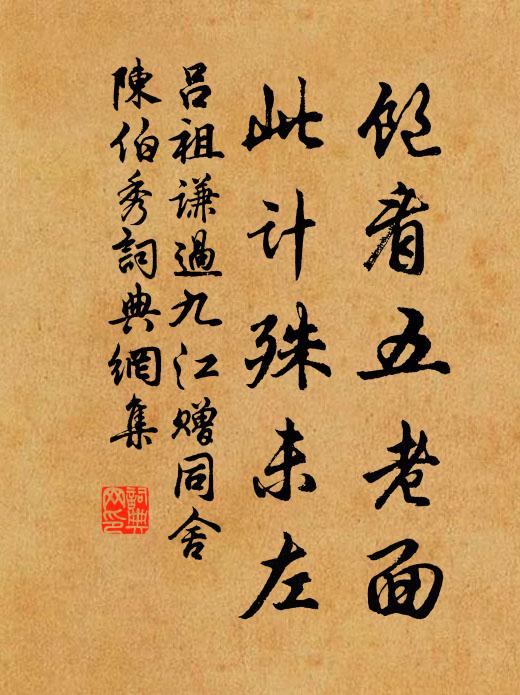 飽看五老面
此計殊未左
呂祖謙過九江贈同舍
陳伯秀詞典網集
詞典網印